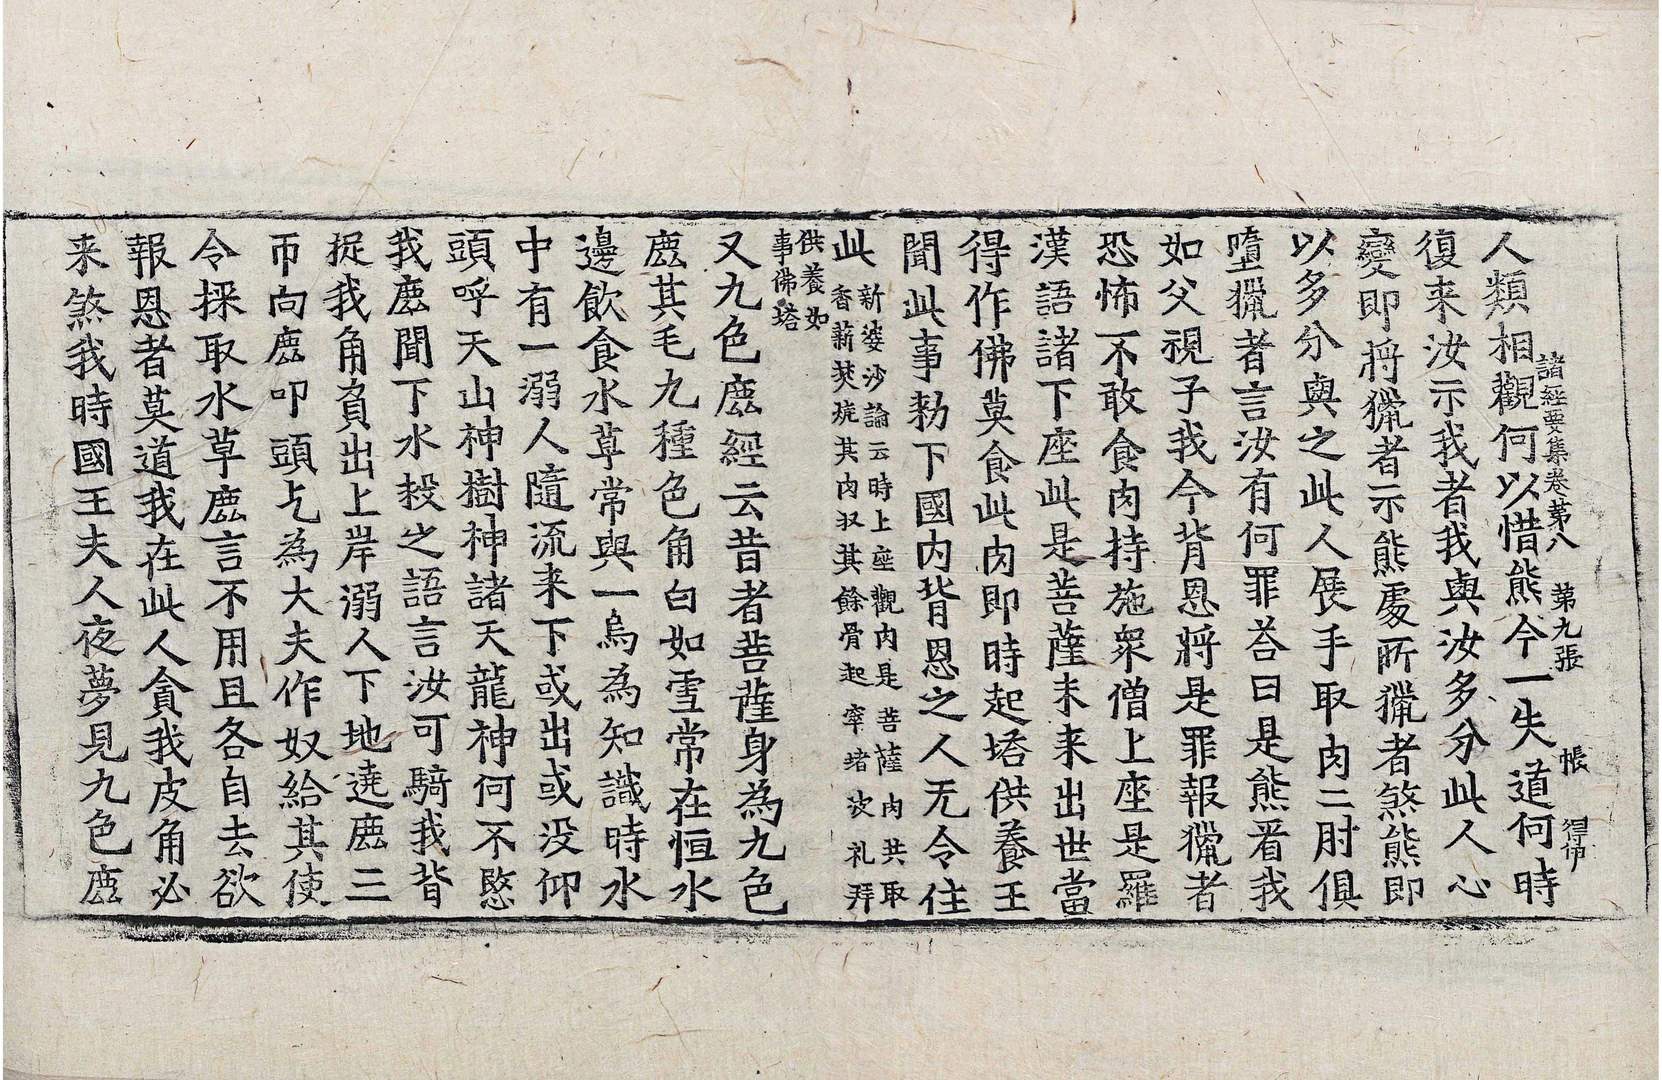 諸經要集卷第八　第九張　帳　得中
人類相觀何以惜熊今一失道何時
復来汝示我者我與汝多分此人心
變即將獵者示熊處所獵者煞熊即
以多分與之此人展手取肉二肘俱
墮獵者言汝有何罪荅曰是熊看我
如父視子我今背恩將是罪報獵者
恐怖不敢食肉持施衆僧上座是羅
漢語諸下座此是菩薩未来出世當
得作佛莫食此肉即時起塔供養王
聞此事勑下國内背恩之人无令住
此
新婆沙論云時上座觀肉是菩薩肉共取
香薪焚燒其肉收其餘骨起窣堵波礼拜
供養如
事佛塔
又九色鹿經云昔者菩薩身為九色
鹿其毛九種色角白如雪常在恒水
邊飲食水草常與一烏為知識時水
中有一溺人隨流来下或出或没仰
頭呼天山神樹神諸天龍神何不愍
我鹿聞下水投之語言汝可騎我背
捉我角負出上岸溺人下地遶鹿三
帀向鹿叩頭乞為大夫作奴給其使
令採取水草鹿言不用且各自去欲
報恩者莫道我在此人貪我皮角必
来煞我時國王夫人夜夢見九色鹿